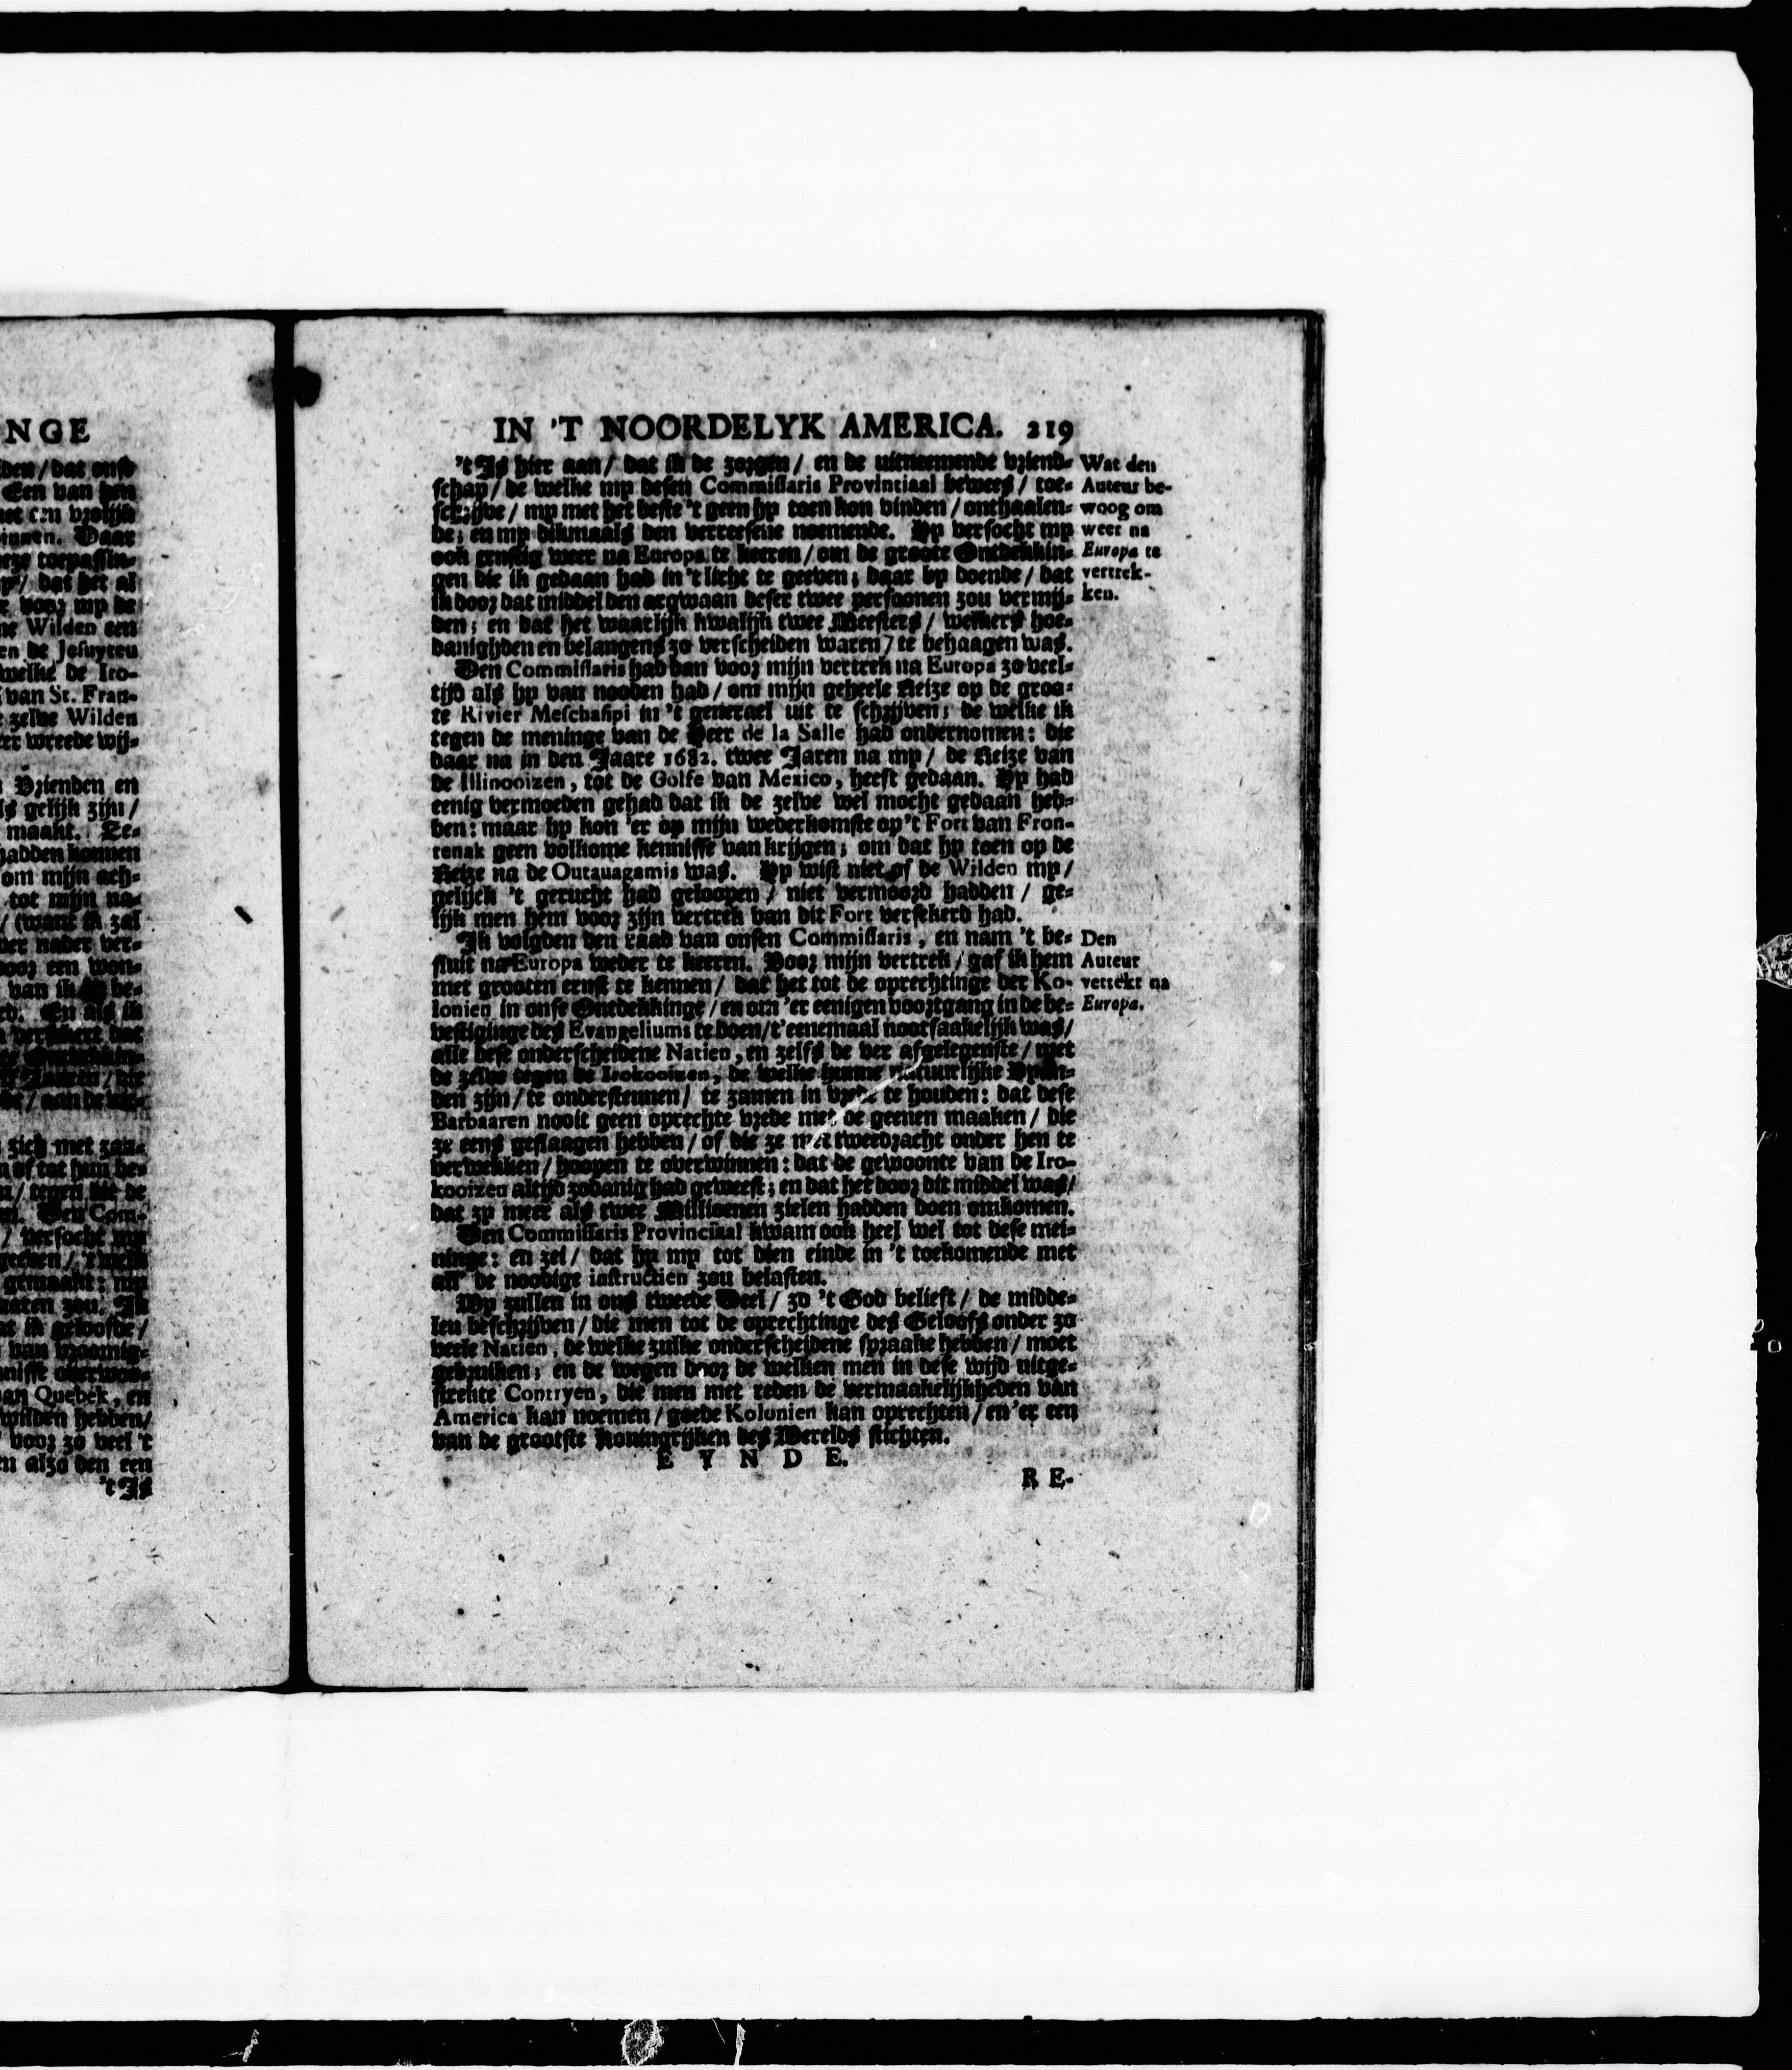 NGE
den/ dat onse
Een van hen
een vrolijk
Daar
toepassin-
dat het al
voor my de
Wilden een
en de Jesuyten
welke de Iro-
van St. Fran-
zelve Wilden
wreede wij-
Vrienden en
gelijk zijn/
maakt. Te-
hadden konnen
om mijn ach-
tot mijn na-
(want ik zal
nader ver-
voor een won-
van ik be-
En als ik
zich met
of tot hun be-
Den Com-
versocht my
ik geloofde/
Quebek, en
wilden hebben/
voor zo veel 't
alzo den een
't Is
IN 'T NOORDELYK AMERICA. 219
't Is hier aan/ dat ik de zorgen/ en de uitneemende vriend-
schap/ de welke my desen Commissaris Provintiaal bewees/ toe-
schrijve/ my met het beste 't geen hy toen kon vinden/ onthaalen-
de; en my dikmaals den verreesene noemende. Hy versocht my
ook ernstig weer na Europa te keeren/ om de groote Ontdekkin-
gen die ik gedaan had in 't licht te geeven; daar by doende/ dat
ik door dat middel den argwaan deser twee persoonen zou vermij-
den; en dat het waarlijk kwalijk twee Meesters/ welkers hoe-
danigheden en belangens zo verscheiden waren/ te behaagen was.
Den Commissaris had dan voor mijn vertrek na Europa zo veel-
tijd als hy van nooden had/ om mijn geheele Reize op de groo-
te Rivier Meschasipi in 't generael uit te schrijven; de welke ik
tegen de meninge van de Heer de la Salle had ondernomen: die
daar na in den Jaare 1682. twee Jaren na my/ de Reize van
de Illinooizen, tot de Golfe van Mexico, heeft gedaan. Hy had
eenig vermoeden gehad dat ik de zelve wel mocht gedaan heb-
ben: maar hy kon 'er op mijn wederkomste op 't Fort van Fron-
tenak geen volkome kennisse van krijgen; om dat hy toen op de
Reize na de Outauagamis was. Hy wist niet of de Wilden my/
gelijck 't gerucht had geloopen/ niet vermoord hadden/ ge-
lijk men hem voor zijn vertrek van dit Fort versekerd had.
Ik volgden den raad van onsen Commissaris, en nam 't be-
sluit na Europa weder te keeren. Voor mijn vertrek/ gaf ik hem
met grooten ernst te kennen/ dat het tot de oprechtinge der Ko-
lonien in onse Ontdekkinge/ en om 'er eenigen voortgang in de be-
vestiginge des Evangeliums te doen/ t'eenemaal nootsaakelijk was/
alle dese onderscheidene Natien, en zelfs de ver afgelegenste/ met
de zelve tegen de Irokooizen, de welke hunne natuurlijke Vyan-
den zijn/ te ondersteunen/ te zamen in vrede te houden: dat dese
Barbaaren nooit geen oprechte vrede met de geenen maaken/ die
ze eens geslaagen hebben/ of die ze met tweedracht onder hen te
verwekken/ hoopen te overwinnen: dat de gewoonte van de Iro-
kooizen altijd zodanig had geweest; en dat het door dit middel was/
dat zy meer als twee Millioenen zielen hadden doen omkomen.
Den Commissaris Provinciaal kwam ook heel wel tot dese mei-
ninge: en zei/ dat hy my tot dien einde in 't toekomende met
all' de noodige instructien zou belasten.
Wy zullen in ons tweede Deel/ zo 't God belieft/ de midde-
len beschrijven/ die men tot de oprechtinge des Geloofs onder zo
veele Natien, de welke zulke onderscheidene spraake hebben/ moet
gebruiken; en de wegen door de welken men in dese wijd uitge-
strekte Contryen, die men met reden de vermaakelijkheden van
America kan noemen/ goede Kolonien kan oprechten/ en 'er een
van de grootste Koningrijken des Werelds stichten.
E Y N D E.
RE-
Wat den
Auteur be-
woog om
weer na
Europa te
vertrek-
ken.
Den
Auteur
vertrekt na
Europa.